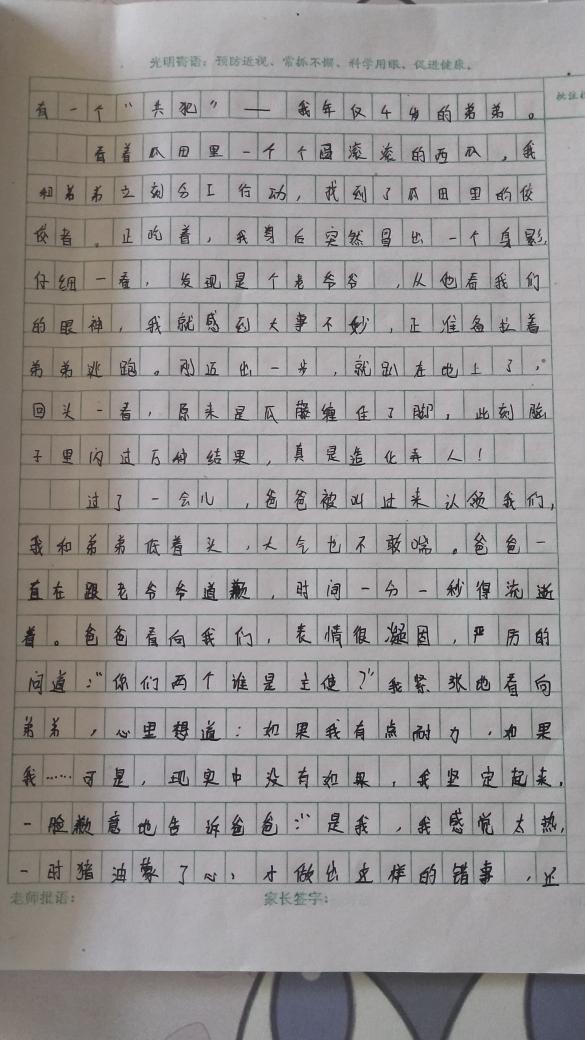 光明寄语：预防近视、常抓不懈、科学用眼、促进健康。
批注栏
有一个“共犯”——我年仅4岁的弟弟。
看着瓜田里一个个圆滚滚的西瓜，我
和弟弟立刻分工行动，找到了瓜田里的佼
佼者。正吃着，我身后突然冒出一个身影，
仔细一看，发现是个老爷爷，从他看我们
的眼神，我就感到大事不妙，正准备拉着
弟弟逃跑。刚迈出一步，就趴在地上了，
回头一看，原来是瓜藤缠住了脚，此刻脑
子里闪过万种结果，真是造化弄人！
过了一会儿，爸爸被叫过来认领我们，
我和弟弟低着头，大气也不敢喘。爸爸一
直在跟老爷爷道歉，时间一分一秒得流逝
着。爸爸看向我们，表情很凝固，严厉的
问道：“你们两个谁是主使？”我紧张地看向
弟弟，心里想道：如果我有点耐力，如果
我……可是，现实中没有如果，我坚定起来，
一脸歉意地告诉爸爸：“是我，我感觉太热，
一时猪油蒙了心，才做出这样的错事，还
老师批语：
家长签字：